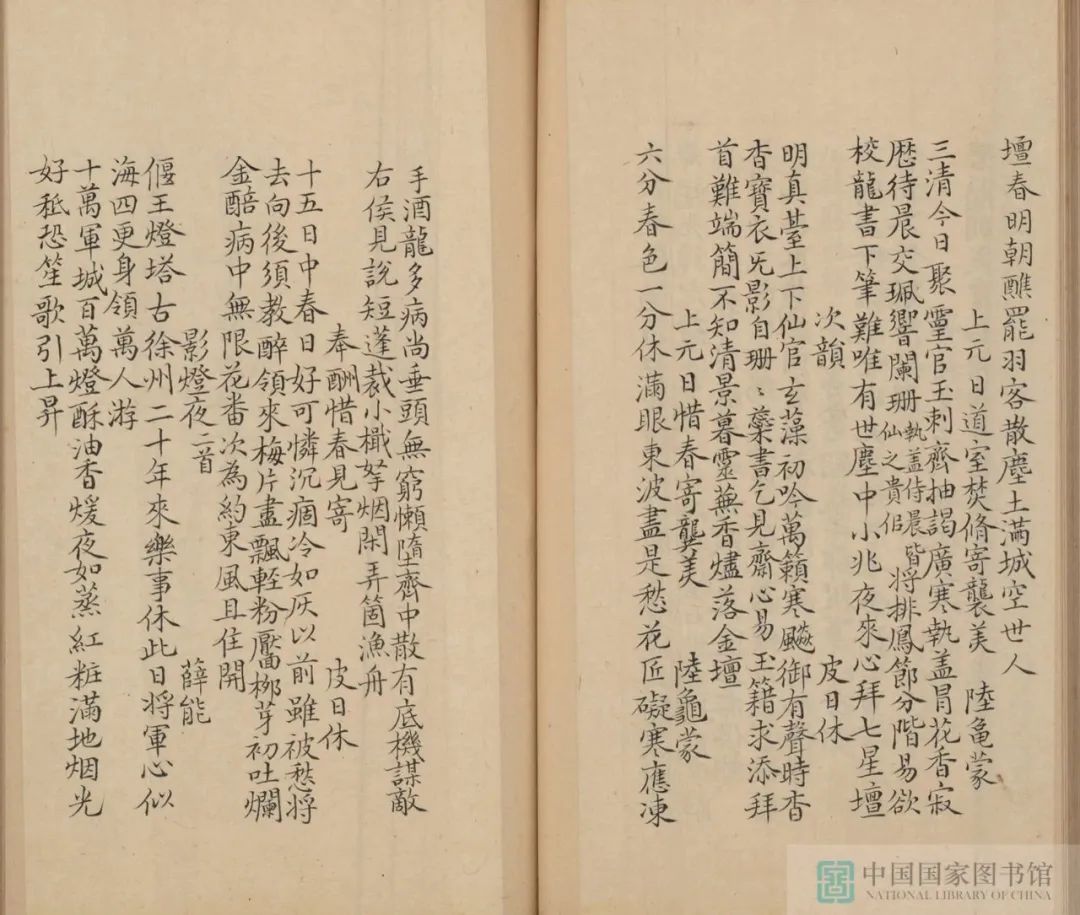 壇春明朝醮罷羽客散塵土滿城空世人
上元日道室焚脩寄襲美　陸龜蒙
三清今日聚靈官玉刺齊抽謁廣寒執盖冐花香寂
歷待晨交珮響闌珊執盖侍晨皆仙之貴侶將排鳳節分階易欲
校龍書下筆難唯有世塵中小兆夜來心拜七星壇
次韻　皮日休
明真臺上下仙官玄藻初吟萬籟寒飈御有聲時杳
杳寳衣无影自珊〻蘂書乞見齋心易玉籍求添拜
首難端簡不知清景暮靈蕪香燼落金壇
上元日惜春寄龔美　陸龜蒙
六分春色一分休滿眼東波盡是愁花匠礙寒應凍
手酒龍多病尚垂頭無窮懶墮齊中散有底機謀敵
右侯見說短蓬裁小檝拏烟閑弄箇漁舟
奉酬惜春見寄　皮日休
十五日中春日好可憐沉痼冷如灰以前雖被愁將
去向後須教醉領來梅片盡飄輕粉靨栁芽初吐爛
金醅病中無限花畨次為約東風且住開
影燈夜二首　薛能
偃王燈塔古徐州二十年來樂事休此日將軍心似
海四更身領萬人游
十萬軍城百萬燈酥油香煖夜如蒸紅粧滿地烟光
好秪恐笙歌引上昇
中国国家图书馆
NATIONAL LIBRARY OF CHINA